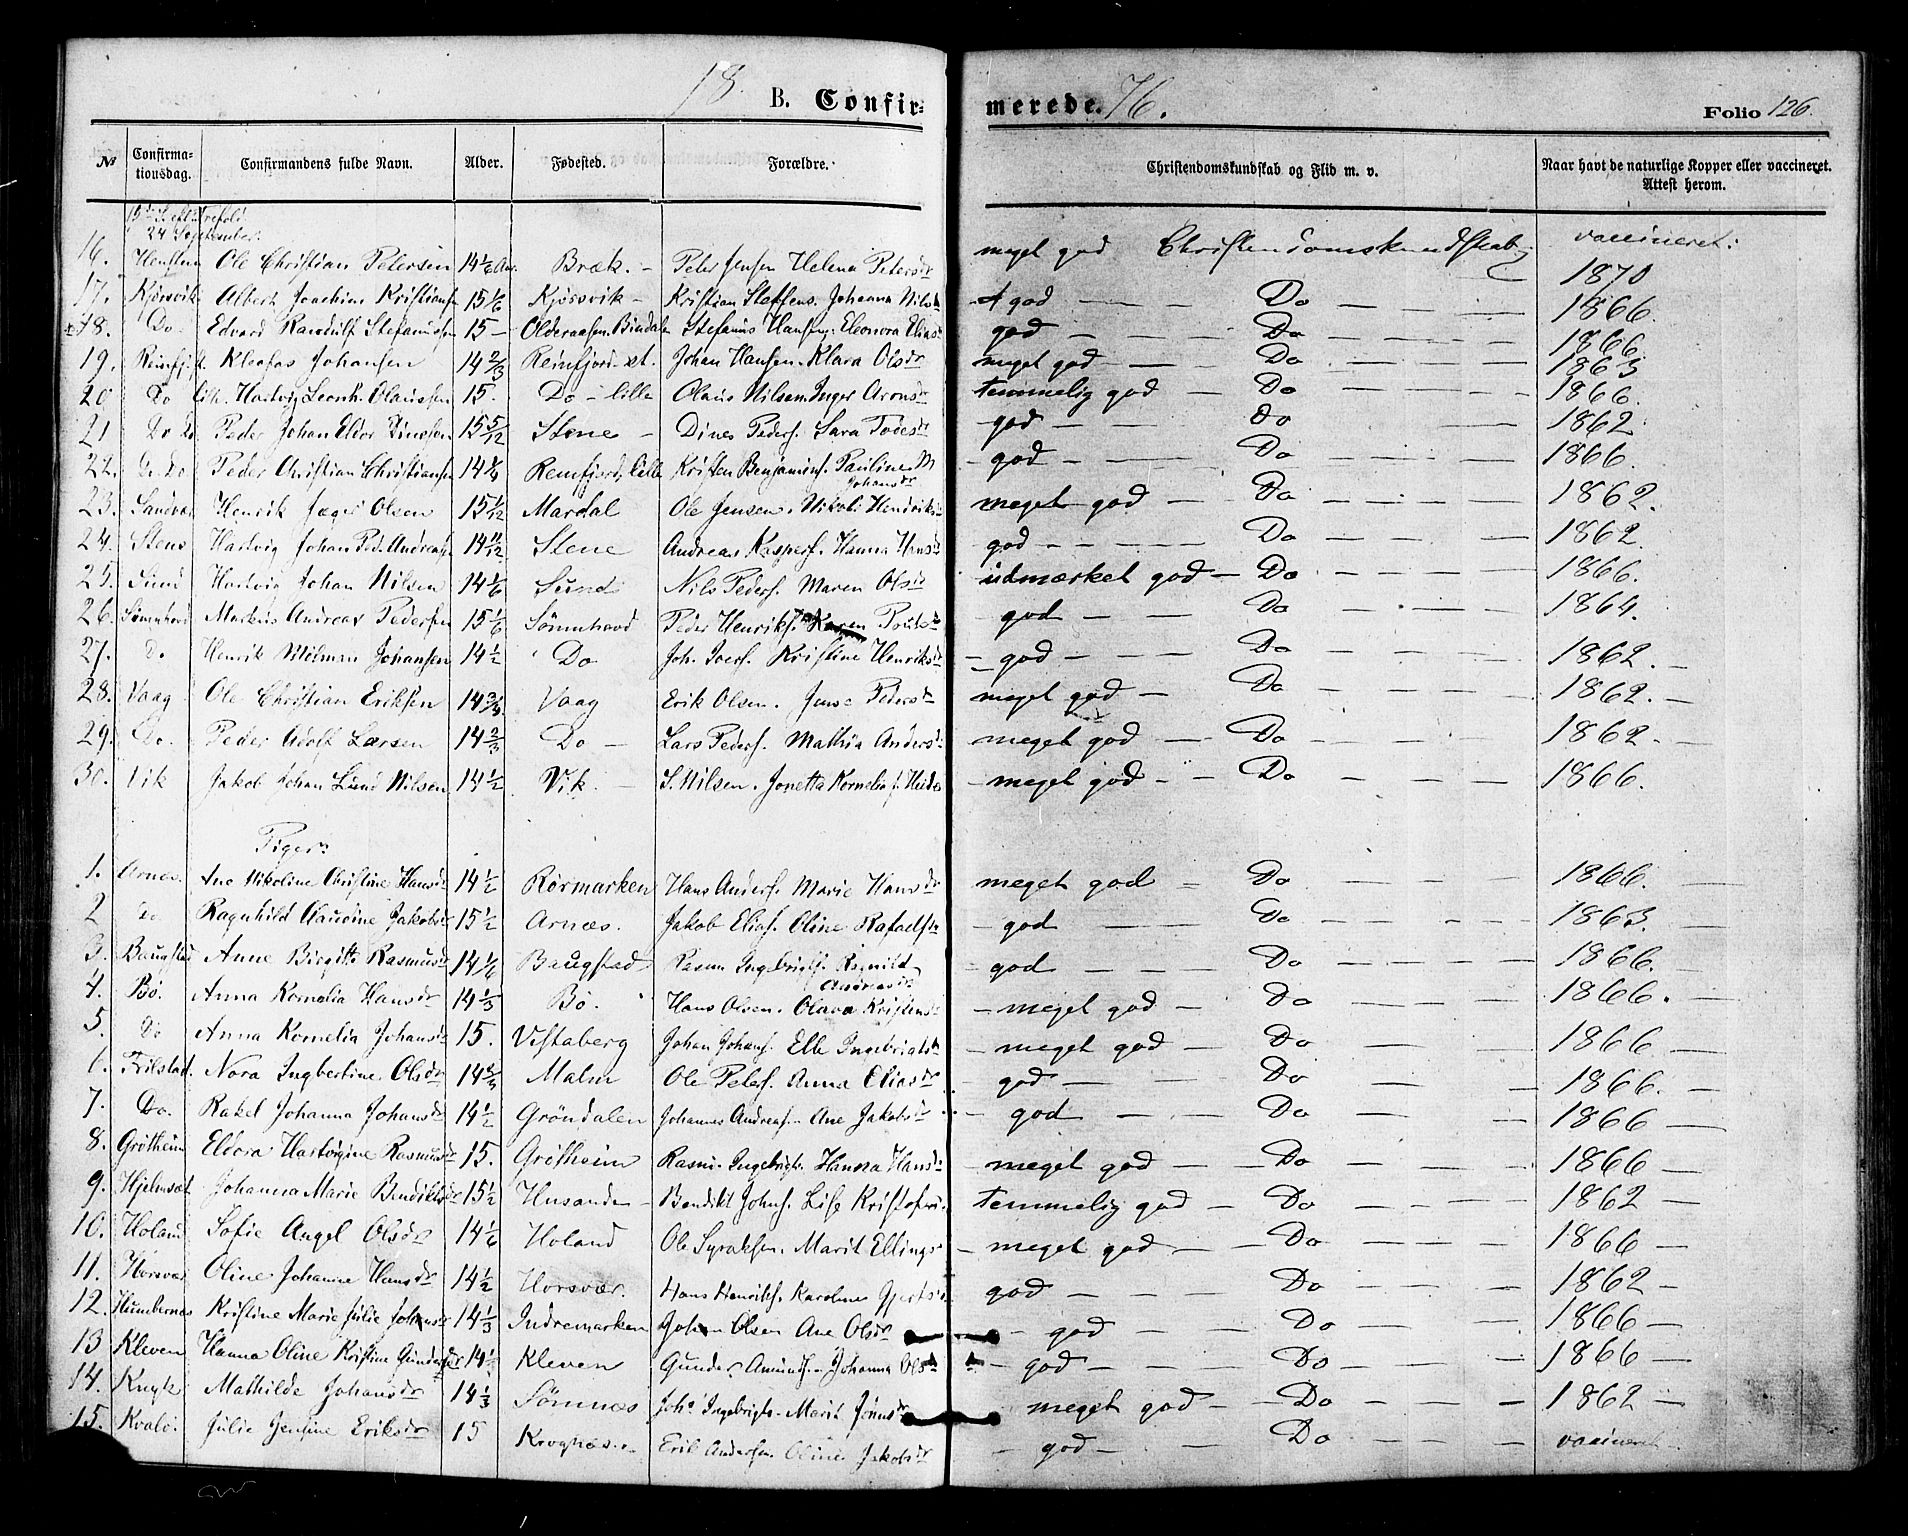 18 B. Confir=
merede. 76.
Folio 126.
No
Confirma-
tionsdag.
Confirmandens fulde Navn.
Alder.
Fødested.
Forældre.
Christendomskundskab og Flid m. v.
Naar havt de naturlige Kopper eller vaccineret.
Attest herom.
24 September.
16. Ole Christian Petersen 14 1/6 Aar Bræk. – Peter Jensen Helena Petersdr meget god Christendomskundskab vaccineret: 1870
17. Kjørsvik Albert Joachim Kristians 15 1/6 Kjørsvik – Kristian Steffens. Johanna Nilsd god — Do — 1866.
18. Do. Edvard Randulf Stefanussen 15 – Olderaasen Bindalen Stefanus Hansen. Eleonora Eliasd god — Do — 1866.
19. Reinfj Kleofas Johansen 14 2/3 Reinfjord st. Johan Hansen. Klara Olsdr meget god — Do — 1863
20 Do lill. Hartvig Leonh. Olaussen 15. Do – lille Olaus Nilsen Inger Aronsdr temmelig god — Do — 1866.
21 Do Do Peder Johan Elior Dinessen 15 5/12 Stene – Dines Peders. Sara Todesdr god — Do — 1862
22. Do Peder Christian Christians 14 1/4 Reinfjord, lille Kristen Benjamins. Pauline M Johansdr god — Do — 1866.
23. Sandvær Henrik Jæger Olsen 15 1/12 Mardal Ole Jensen. Nikoli Hendriks meget god — Do — 1862.
24. Stens Hartvig Johan Ped. Andreas 14 11/12 Stene Andreas Kaspers. Hanna Hansd god — Do — 1862.
25. Sund Hartvig Johan Nilsen 14 1/6 Sund Nils Peders. Maren Olsd udmærket god — Do — 1866.
26. Sømnhovd Markus Andreas Pedersen 15 1/6 Sømnhovd Peder Henriks. Karen Pouls god — Do — 1864.
27. Do Henrik Milman Johansen 14 1/2 Do Joh. Ivers. Kristine Henriksd god — Do — 1862.
28. Vaag Ole Christian Eriksen 14 3/4 Vaag Erik Olsen. Jens Pedersd meget god — Do — 1862.
29. Do. Peder Adolf Larsen 14 2/3 Do – Lars Peders. Mathia Anders meget god — Do — 1862.
30. Vik Jakob Johan Lund Nilsen 14 1/2 Vik. – S. Nilsen. Jonetta Kornelia f. Heide meget god — Do — 1866.
Piger
1. Arnes. Ane Nikoline Christine Hansd 14 1/2 Rørmarken Hans Anders. Marie Hansdr meget god — Do — 1866.
2 Do Ragnhild Claudine Jakobsdr 15 1/2 Arnæs. Jakob Elias. Oline Rafaels god — Do — 1863.
3. Baugstad Anne Birgitte Rasmusd 14 1/6 Baugstad Rasm Ingebrigts. Ragnild Andreasdr god — Do — 1866.
4. Bø. Anna Kornelia Hansdr 14 1/3 Bø. Hans Olsen. Olava Kristens meget god — Do — 1866.
5. Do Anna Kornelia Johansd 15. Vistaberg Johan Johans. Elle Ingebrigts meget god — Do — 1866.
6. Frilstad. Nora Ingbertine Olsdr 14 3/4 Malm Ole Peters. Anna Eliasdr god — Do — 1866.
7. Do. Rakel Johanna Johansd 14 1/2 Grøndalen Johannes Andreas. Ane Jakobsd god — Do — 1866
8. Grøtheim Eldora Hartvigine Rasmusdr 15. Grøtheim Rasm. Ingebrigts. Hanna Hansd meget god — Do — 1866
9. Hjelmsæt Johanna Marie Bendiktsdr 15 1/2 Husande – Bendikt Johns. Lise Kristofers temmelig god — Do — 1862
10. Holand Sofie Angel Olsdr 14 1/6 Holand Ole Syraksen. Marit Ellings meget god — Do — 1866
11. Horsvær Oline Johanne Hansdr 14 1/2 Horsvær. Hans Henriks. Karoline Gjertsd god — Do — 1862
12. Humbernes Kristine Marie Julie Johansdr 14 1/3 Indremarken Johan Olsen Ane Olsdr god — Do — 1866
13 Kleven Hanna Oline Kristine Gunders dr 14 1/2 Kleven Gunder Amunds. Johanna Olsd god — Do — 1866
14. Knyk Mathilde Johansdr 14 1/3 Sømnæs Joh. Ingebrigts. Marit Jønsdr meget god — Do — 1862
15. Kvalø. Julie Jensine Eriksdr 15 Krognæs. Erik Andersen. Oline Jakobsdr god — Do — vaccineret